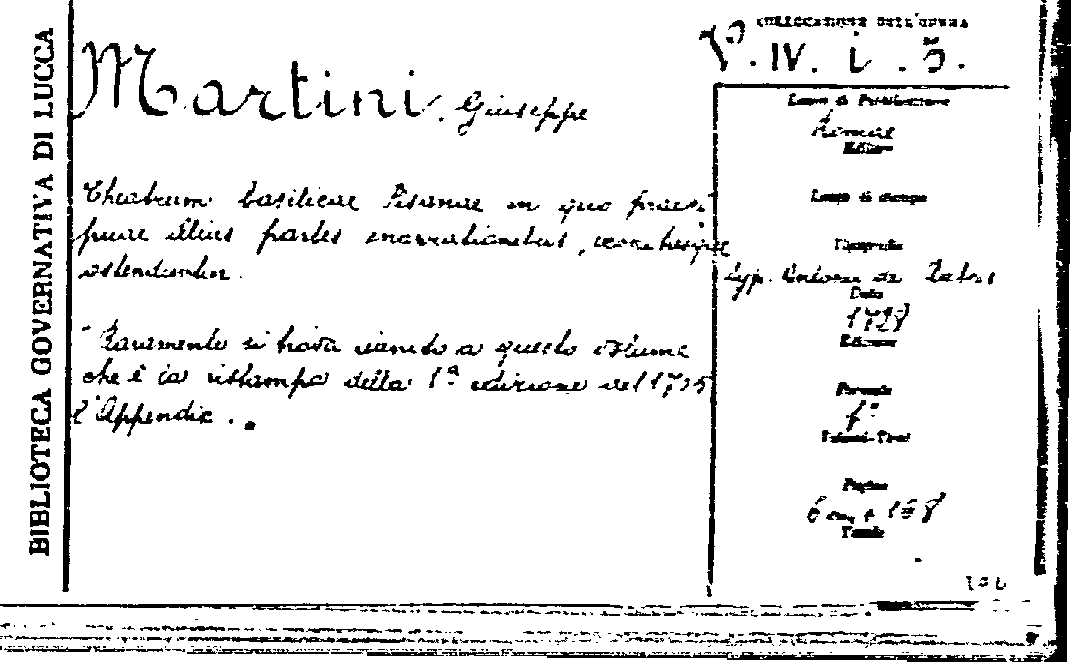 BIBLIOTECA GOVERNATIVA DI LUCCA
COLLOCAZIONE DELL'OPERA
IV. i. 5.
Martini, Giuseppe
Theatrum basilicae Pisanae in quo praeci-
puae illius partes enarrationibus, iconibusque
ostenduntur.
Raramente si trova unito a questo volume
che è la ristampa della 1ª edizione del 1705
l'Appendic.
Luogo di Pubblicazione
Romae
Editore
Luogo di stampa
Tipografia
Typ. Antonii de Rubeis
Data
1728
Edizione
Formato
f°
Volumi-Tomi
Pagine
6 + 158
Tavole